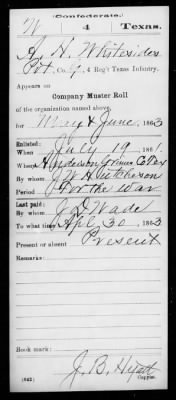 (Confederate.)
W 4 Texas.
H. Whitesides
Pvt, Co. G, 4 Reg't Texas Infantry.
Appears on
Company Muster Roll
of the organization named above,
for May & June, 1863
Enlisted:
When July 19, 1861.
Where Anderson Grimes Co Tex
By whom J W Hutcheson
Period For the war
Last paid:
By whom J. D. Wade
To what time Apl 30, 1863
Present or absent Present
Remarks:
Book mark:
(642) J. B. Copyist.